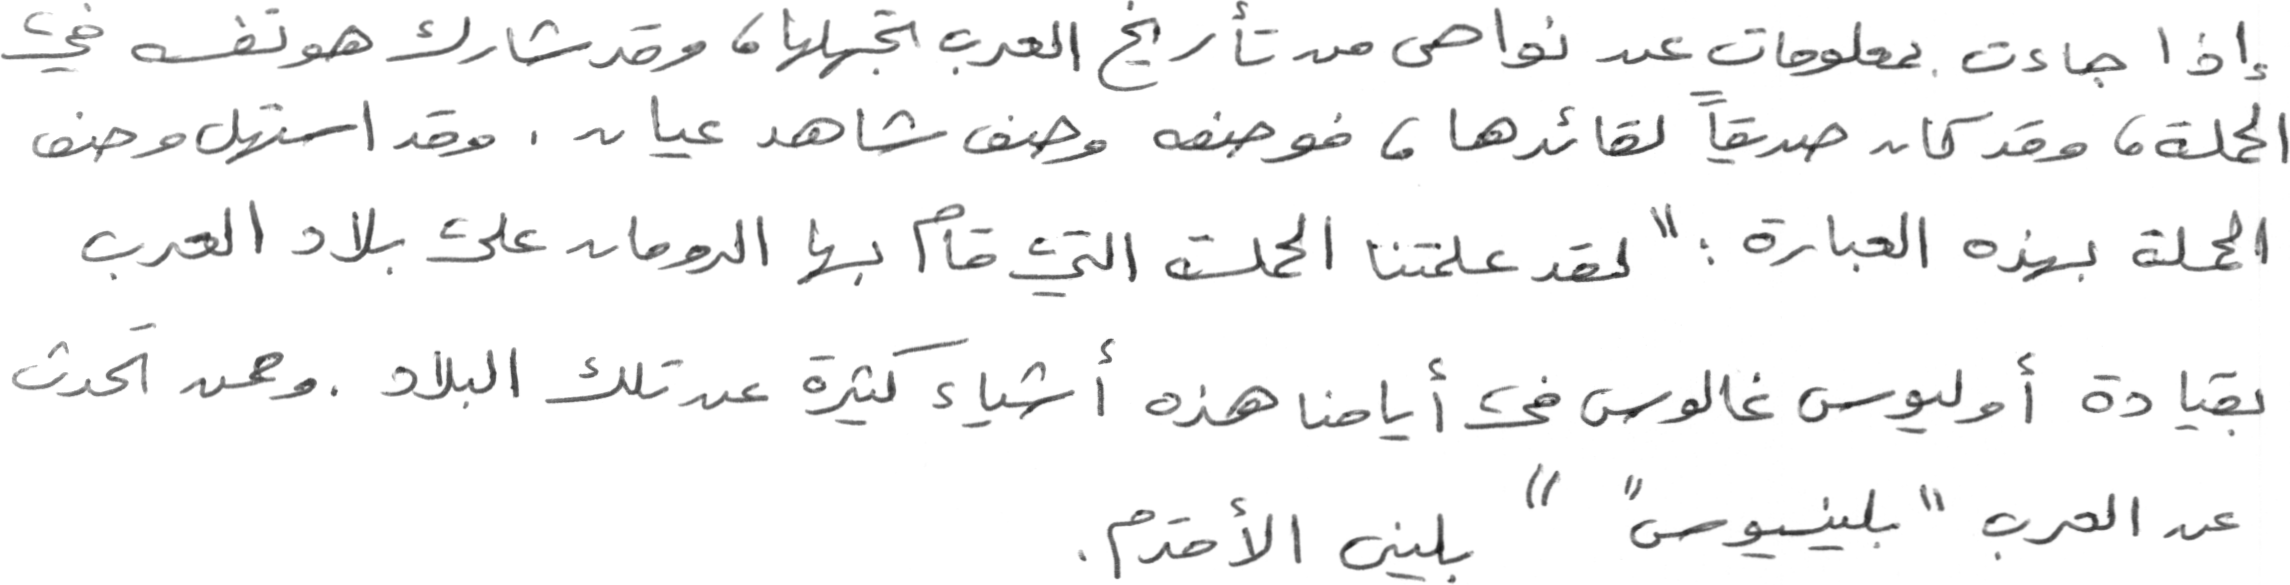 إذا جاءت بمعلومات عن نواحى من تأريخ العرب نجهلها، وقد شارك هو نفسه في
الحملة، وقد كان صديقاً لقائدها، فوصفه وصف شاهد عيان. وقد استهل وصف
الحملة بهذه العبارة: "لقد علمتنا الحملة التي قام بها الرومان على بلاد العرب
بقيادة أوليوس غالوس في أيامنا هذه أشياء كثيرة عن تلك البلاد. وممن تحدث
عن العرب "بلينيوس" " بليني الأقدم.